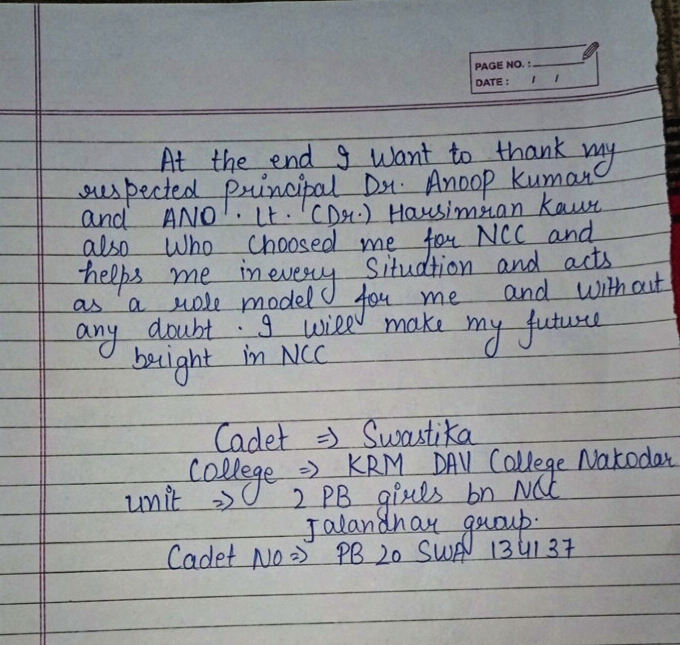 PAGE NO. :
DATE : / /
At the end I want to thank my
respected Principal Dr. Anoop Kumar
and ANO . Lt. (Dr.) Harsimran Kaur
also who choosed me for NCC and
helps me in every Situation and acts
as a role model for me and without
any doubt . I will make my future
bright in NCC
Cadet ⇒ Swastika
College ⇒ KRM DAV College Nakodar
unit ⇒ 2 PB girls bn NCC
Jalandhar group.
Cadet No ⇒ PB 20 SWA 134137